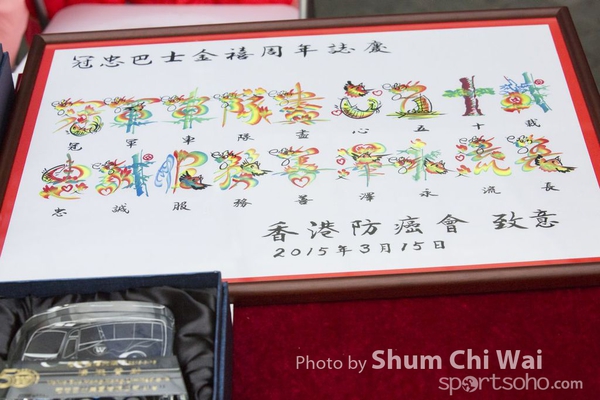 冠忠巴士金禧周年誌慶
冠軍車隊盡心五十載
忠誠服務善澤永流長
香港防癌會 致意
2015年3月15日
50
Photo by Shum Chi Wai
sportsoho.com